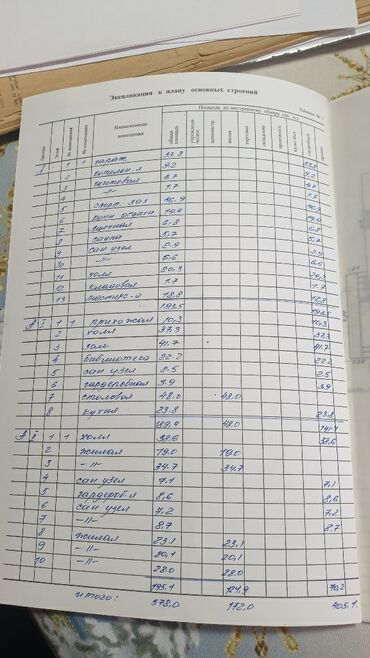 Экспликация к плану основных строений
Таблица № 1
Площадь по внутреннему обмеру (кв. м.)
Литера
Этаж
Наименование помещения
общая площадь
жилая
торговая
1 гараж 37.3
2
3 бытовая 4.7 4.7
-"- 1.7 1.7
4 спорт зал 16.9 16.9
5 комн отдыха 14.4 14.4
6 6.8 6.8
8 сауна 5.7 5.7
9 сан узел 2.9 2.9
10 -"- 6.6 6.6
11 холл 20.3 20.3
12 кладовая 1.7 1.7
13 18.8 18.8
193.5 193.5
А I 1 1 прихожая 10.3 10.3
2 холл 37.3 37.3
3 зал 41.7 41.7
4 библиотека 22.2 22.2
5 сан узел 2.5 2.5
6 гардеробная 3.9 3.9
7 столовая 48.0 48.0
8 кухня 23.8 23.8
189.4 48.0 141.4
А II 1 1 холл 38.6 38.6
2 жилая 19.0 19.0
3 -"- 34.7 34.7
4 сан узел 7.1 7.1
5 8.6 8.6
6 сан узел 7.2 7.2
7 -"- 8.7 8.7
8 жилая 23.1 23.1
9 -"- 20.1 20.1
10 -"- 28.0 28.0
195.1 124.9 70.2
итого: 578.0 172.0 405.1